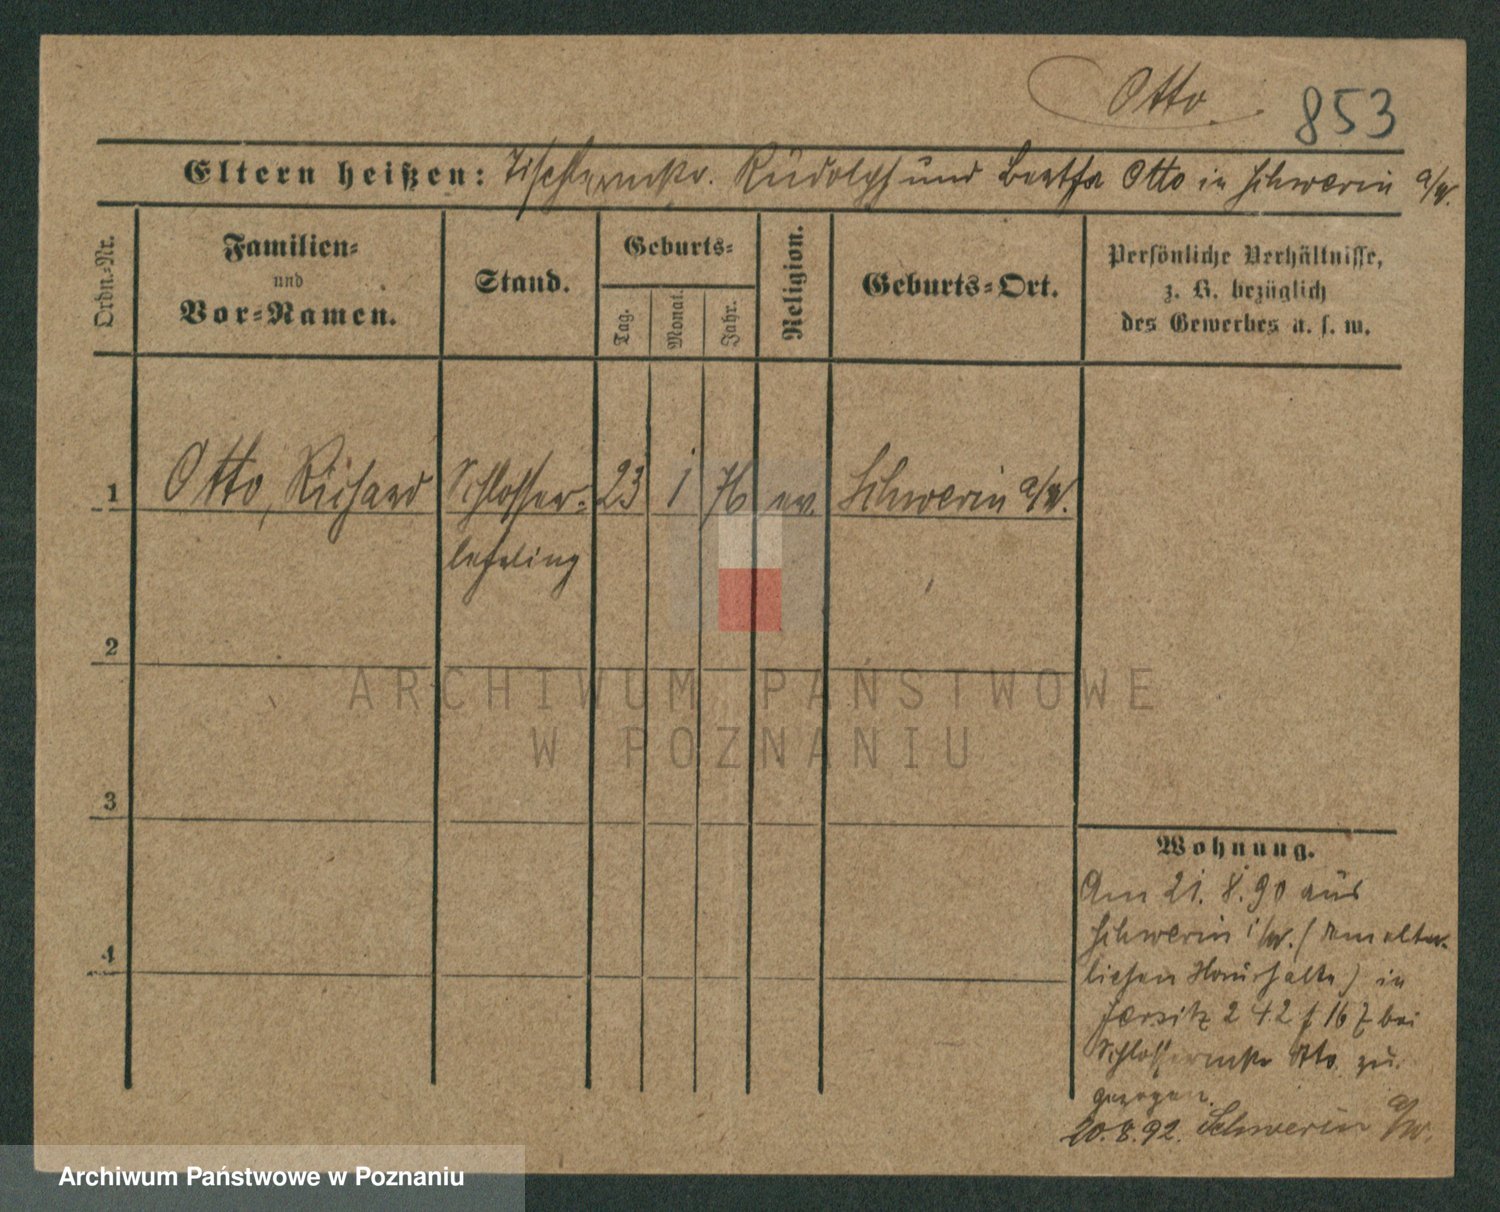 Otto.
853
Eltern heißen: Tischlermstr. Rudolph und Bertha Otto in Schwerin a/W.
Ordn.-Nr.
Familien-
und
Vor-Namen.
Stand.
Geburts-
Tag.
Monat.
Jahr.
Religion.
Geburts-Ort.
Persönliche Verhältnisse,
z. B. bezüglich
des Gewerbes u. s. w.
1 Otto, Richard Schlosser- 23 1 76 ev. Schwerin a/W.
lehrling
2
3
4
Wohnung.
Am 21. 8. 90 aus
Schwerin /W. ( elter-
lichen Haushalte) in
Jersitz 242 167 bei
Schlossermstr Otto zu
gezogen.
20.8.92. Schwerin a/W.
ARCHIWUM PAŃSTWOWE
W POZNANIU
Archiwum Państwowe w Poznaniu